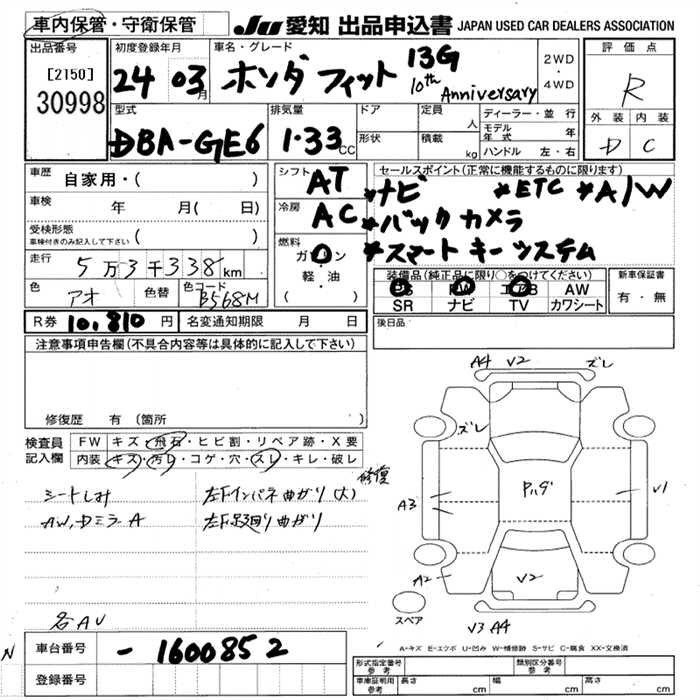 車内保管・守衛保管
JU 愛知 出品申込書 JAPAN USED CAR DEALERS ASSOCIATION
出品番号
[2150]
30998
初度登録年月
24 03月
車名・グレード
ホンダ フィット 13G
10th Anniversary
2WD
・
4WD
評価点
R
外装 内装
D C
型式
DBA-GE6
排気量
1.33CC
ドア
形状
定員 人
積載 kg
ディーラー・並行
モデル年式 年
ハンドル 左・右
車歴 自家用・( )
車検 年 月( 日)
受検形態
車検付きのみ記入して下さい ( )
走行 5万3千338km
色 アオ 色替 色コード B568M
シフト AT
冷房 AC
燃料 ガソリン
軽・油
( )
セールスポイント(正常に機能するものに限ります)
*ナビ *ETC *A/W
*バックカメラ
*スマートキーシステム
装備品(純正品に限り○をつけてください)
PS PW エアB AW
SR ナビ TV カワシート
新車保証書
有・無
R券 10,810円 名変通知期限 月 日
後日品
注意事項申告欄(不具合内容等は具体的に記入して下さい)
修復歴 有 (箇所 )
検査員記入欄
FW キズ・飛石・ヒビ割・リペア跡・X要
内装 キズ・汚レ・コゲ・穴・スレ・キレ・破レ
シートしみ 左Fインパネ曲がり(大)
AW,Dミラー A 左F足廻り曲がり
各AU
修復
A4 V2 ズレ
ズレ
Pハゲ
A3
V1
A2
V2
V3 A4
スペア
A-キズ E-エクボ U-凹み W-補修跡 S-サビ C-腐食 XX-交換済
N
車台番号 - 1600852
登録番号
形式指定番号
参考
類別区分番号
参考
車庫証明用
参考
長さ cm 幅 cm 高さ cm